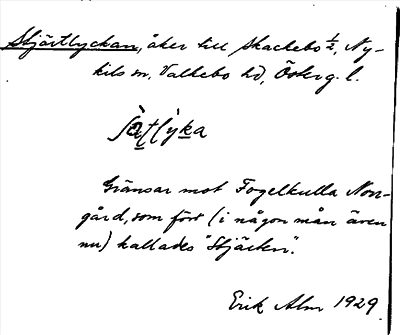 Stjärtlyckan, åker till Skackebo ½, Ny-
kils sn, Valkebo hd, Österg. l.
Gränsar mot Fogelkulla Norr-
gård, som förr (i någon mån även
nu) kallades "Stjärten".
Erik Alm 1929.